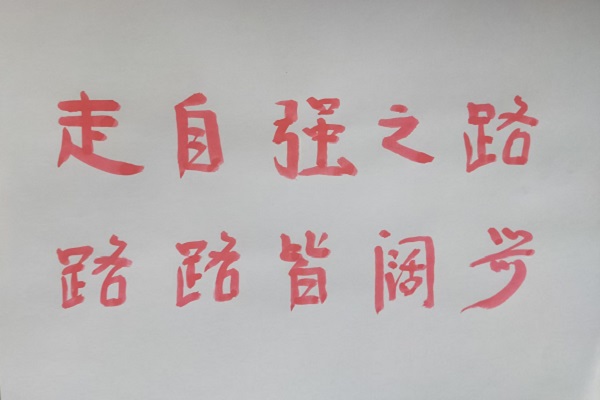 走自强之路
路路皆阔步